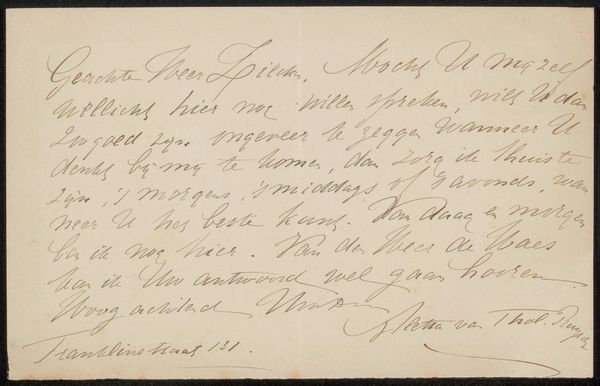 Geachte Heer Zilcken, Mocht U mij zelf
wellicht hier nog willen spreken, wilt U dan
zoo goed zijn ongeveer te zeggen wanneer U
denkt bij mij te komen, dan zorg ik thuis te
zijn, 's morgens, 's middags of 's avonds, wan
neer U het beste kunt. Van daag en morgen
ben ik nog hier. Van den Heer de Haes
kan ik Uw antwoord wel gaan hooren.
Hoog achtend
Aletta van Thol. Ruysch
Franklinstraat 131.